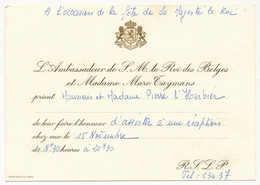 A l'occasion de la fête de Sa Majesté le Roi
L'Ambassadeur de S.M. le Roi des Belges
et Madame Marc Taymans
prient Monsieur et Madame Pierre L'Herbier
de leur faire l'honneur d'assister à une réception
chez eux le 15 Novembre
de 18h30 heures à 20h30
R.S.L.P.
Tél: 23437